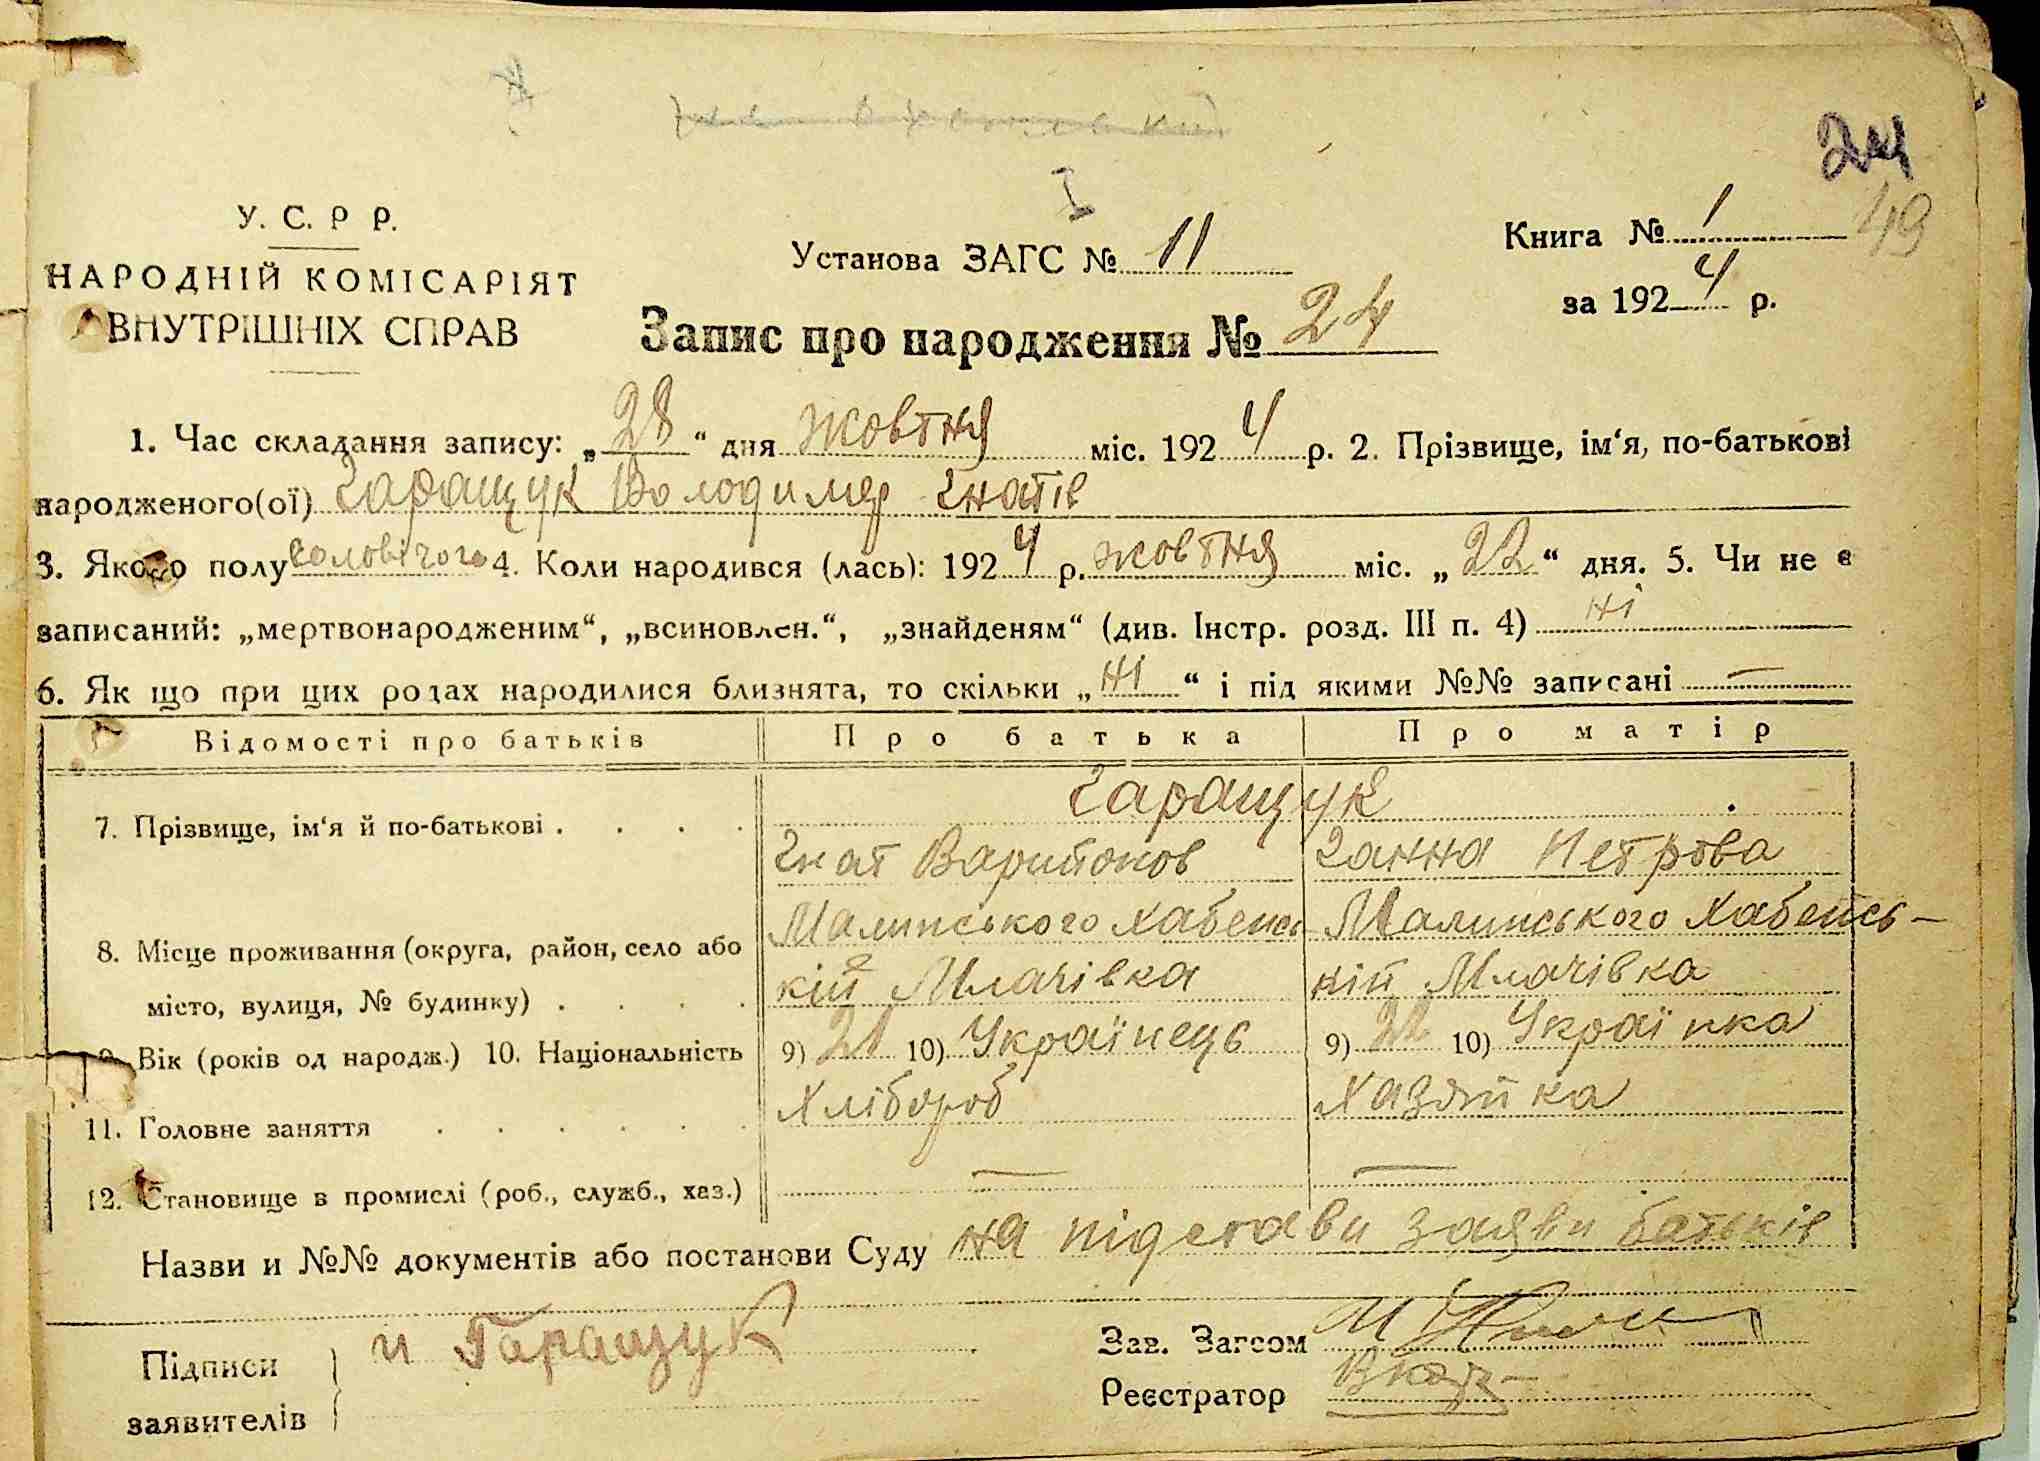 24
49
I
У. С. Р Р.
НАРОДНІЙ КОМІСАРІЯТ
ВНУТРІШНІХ СПРАВ
Установа ЗАГС № 11
Книга № 1
за 1924 р.
Запис про народження № 24
1. Час складання запису: „28“ дня жовтня міс. 1924 р. 2. Прізвище, ім‘я, по-батькові
народженого(ої) Гаращук Володимер Гнатів
3. Якого полу чоловічого 4. Коли народився (лась): 1924 р. жовтня міс. „22“ дня. 5. Чи не є
записаний: „мертвонародженим“, „всиновлен.“, „знайденям“ (див. Інстр. розд. III п. 4) ні
6. Як що при цих родах народилися близнята, то скільки „ні“ і під якими №№ записані —
Відомості про батьків Про батька Про матір
7. Прізвище, ім‘я й по-батькові . . . . Гаращук
Гнат Ганна Петрова
Малинського Хабенсь Малинського Хабенсь-
8. Місце проживання (округа, район, село або
кій Млачівка кій Млачівка
місто, вулиця, № будинку) . . . .
9. Вік (років од народж.) 10. Національність 9) 21 10) Українець 9) 10) Українка
11. Головне заняття . . . . . . Хлібороб Хазяйка
12. Становище в промислі (роб., служб., хаз.) — —
Назви и №№ документів або постанови Суду на підстави заяви батьків
Підписи
заявителів
и Гаращук
Зав. Загсом
Реєстратор